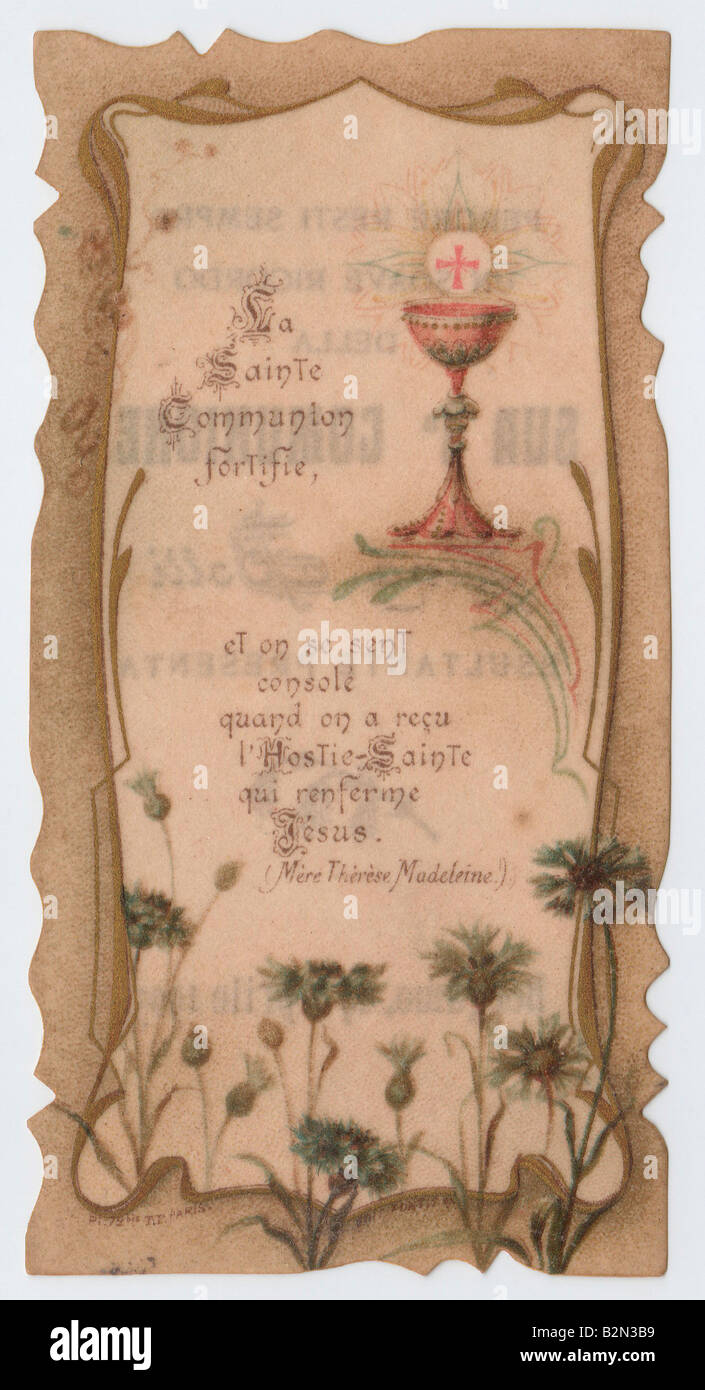 La
Sainte
Communion
fortifie,
et on se sent
consolé
quand on a reçu
l'Hostie-Sainte
qui renferme
Jésus.
(Mère Thérèse Madeleine.)
PARIS.
alamy
Image ID: B2N3B9
www.alamy.com